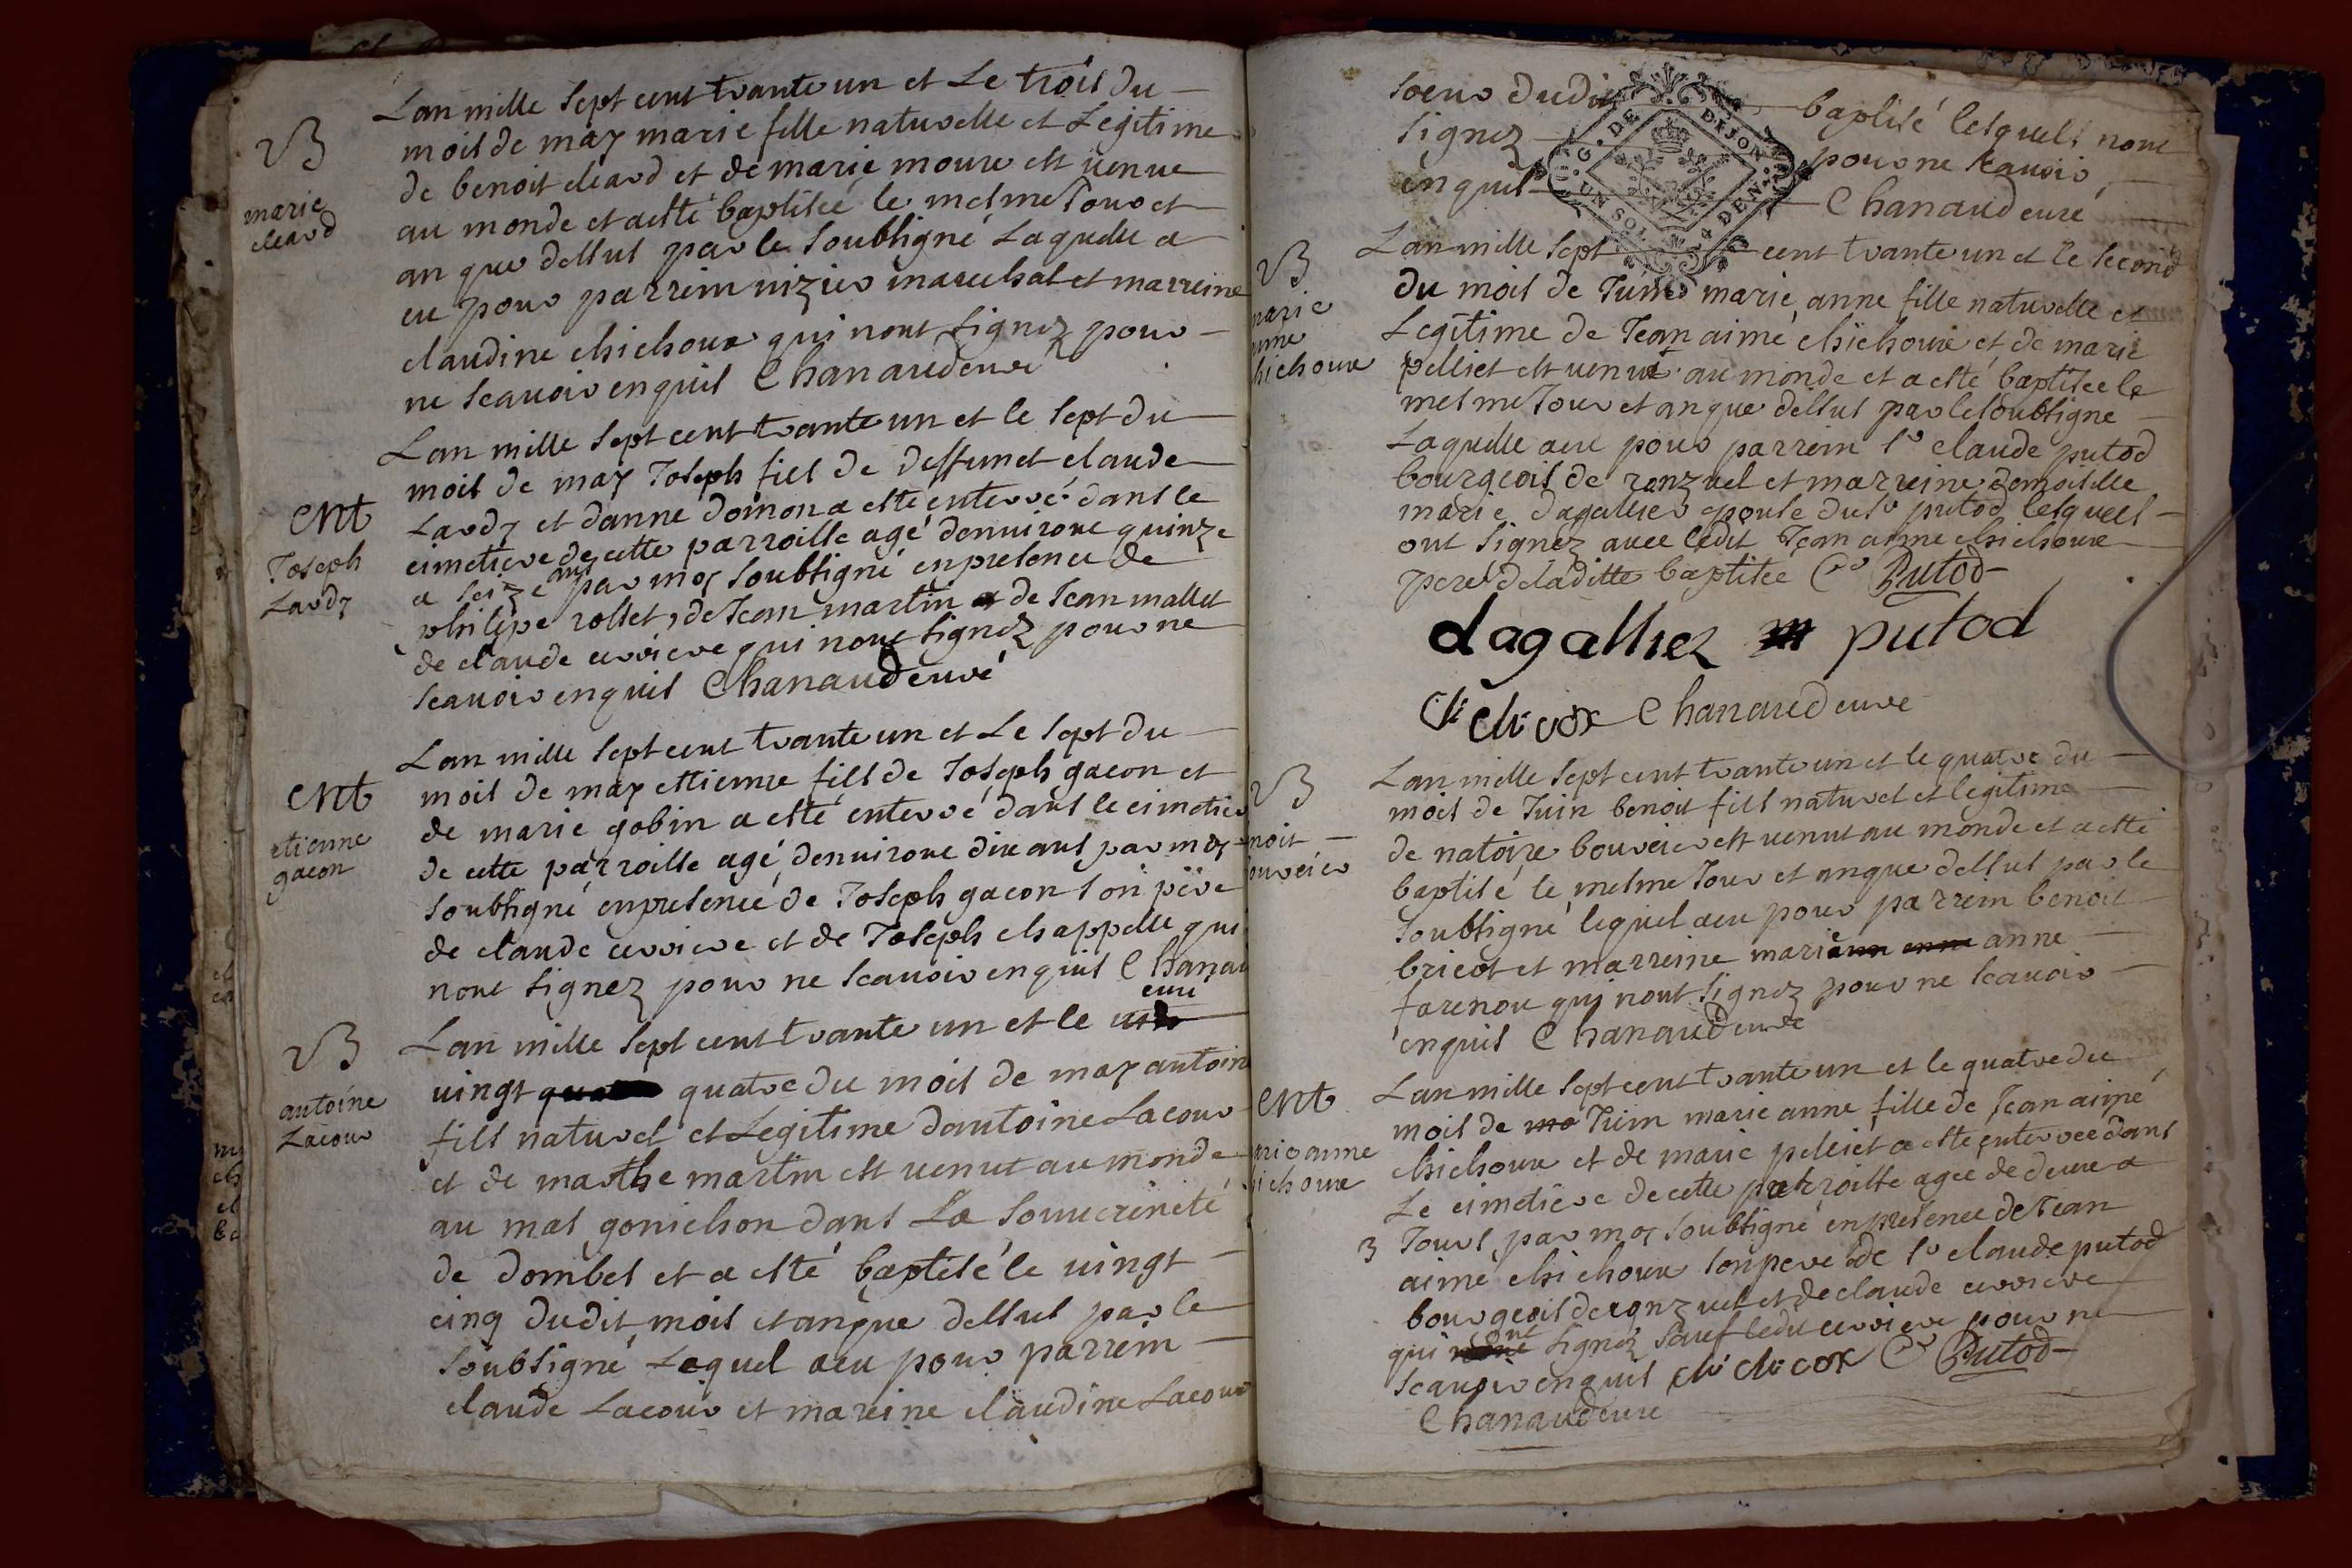 B
marie
cleard
Lan mille Sept cent trante un et Le trois du
mois de may marie fille naturelle et Legitime
de benoit cleard et de marie moure est venue
au monde et a esté baptisée le mesme Jour et
an que dessus par le soubsigné Laquelle a
eu pour parrein nizier marechal et marreine
claudine chichoux qui nont signez pour
ne scavoir enquis Chanaud curé
ent
Joseph
Lardy
Lan mille Sept cent trante un et le sept du
mois de may Joseph fils de deffunct claude
Lardy et danne domon a esté enterré dans le
cimetiere de cette parroisse agé denvirons quinze
a seize ans par moy soubsigné enpresence de
philipe rollet, de Jean martin de Jean mallet
de claude cerriere qui nont signez pour ne
scavoir enquis Chanaud curé
ent
etienne
gacon
Lan mille Sept cent trante un et Le sept du
mois de may ettienne fils de Joseph gacon et
de marie gobin a esté enterré dans le cimetier
de cette parroisse agé denvirons dix ans par moy
soubsigné enpresence de Joseph gacon son père
de claude cerriere et de Joseph chappelle qui
nont signez pour ne scavoir enquis Chanau
curé
B
antoine
Lacour
Lan mille Sept cent trante un et le
vingt quatre du mois de may antoin
fils naturel et Legitime dantoine Lacour
et de marthe martin est venut au monde
au mas gonichon dans La souvereineté
de dombes et a esté baptisé le vingt
cinq dudit mois et anque dessus par le
soubsigné Lequel aeu pour parrein
claude Lacour et mareine claudine Lacour
soeur dudit baptisé lesquels nont
signez pour ne scavoir
enquis Chanaud curé
G. DE DIJON
UN SOL 4 DEN.
B
marie
anne
hichoux
Lan mille Sept cent trante un et le second
du mois de Juin marie anne fille naturelle et
Legitime de Jean aimé chichoux et de marie
pelliet est venue au monde et a esté baptisée le
mesme Jour et anque dessus par le soubsigné
Laquelle aeu pour parrein sr claude putod
bourgeois de ronzuel et marreine demoiselle
marie dagallier epouse dusr putod lesquels
ont signez avec ledit Jean aimé chichoux
pere deladitte baptisée Cr Putod
dagallier m putod
chichcox Chanaud curé
B
noit
ouvéier
Lan mille Sept cent trante un et le quatre du
mois de Juin benoit fils naturel et legitime
de natoire bouveier est venut au monde et a esté
baptisé le mesme Jour et anque dessus par le
soubsigné lequel aeu pour parrein benoit
bricot et marreine marie anne
farenou qui nont signez pour ne scavoir
enquis Chanaud curé
ent
arie anne
hichoux
Lan mille Sept cent trante un et le quatre du
mois de mo Juin marie anne fille de Jean aimé
chichoux et de marie pelliet a esté enterree dans
Le cimetiere de cette parroisse agee de deux a
3 Jours par moy soubsigné enpresence de Jean
aimé chichoux sonpere de sr claude putod
bourgeois de ronzuel et de claude cerriere
qui ont signez sauf ledit cerriere pour ne
scavoir enquis chichcox Cr Putod
Chanaud curé